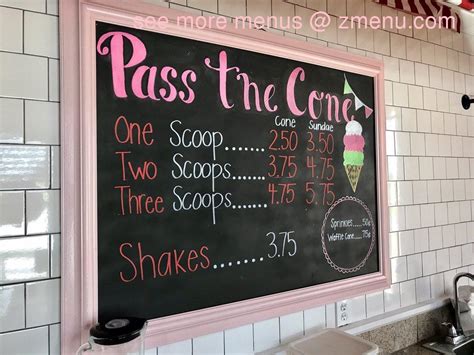 see more menus @ zmenu.com
Pass the Cone
Cone Sundae
One Scoop....... 2.50 3.50
Two Scoops...... 3.75 4.75
Three Scoops...... 4.75 5.75
Sprinkles.....50¢
Waffle Cone.....75¢
Shakes....... 3.75